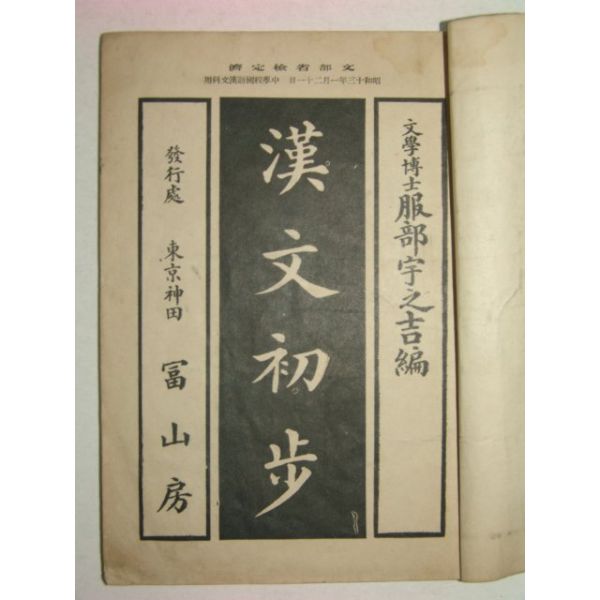 濟定檢省部文
昭和十三年一月二十一日 中學校國語漢文科用
文學博士服部宇之吉編
漢文初步
發行處 東京神田 冨山房